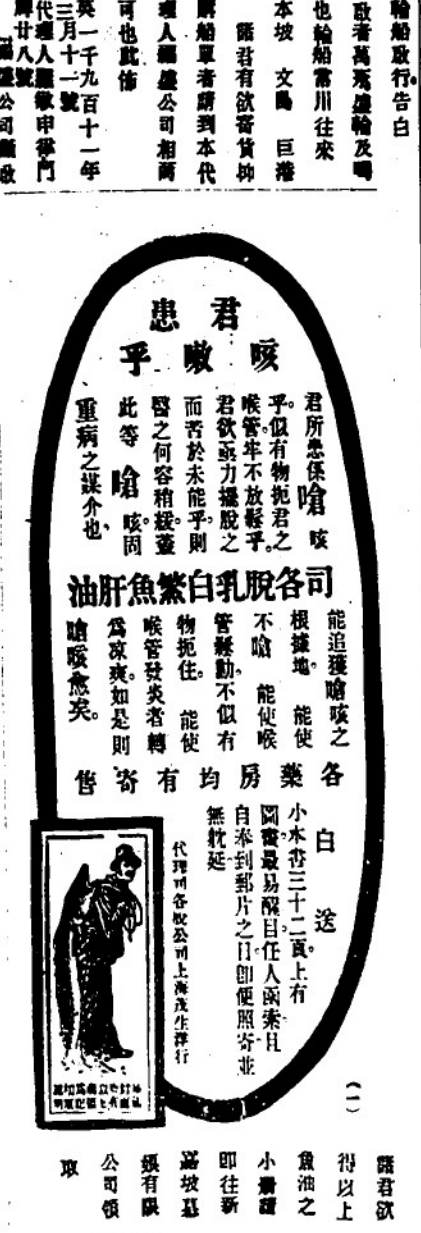 輪船啟行告白
啟者萬飛盛輪及鳴
也輪船常川往來
本坡 文島 巨港
諸君有欲寄貨抑
購船單者請到本代
理人 盛公司相商
可也此佈
英一千九百十一年
三月十一號
代理人 敬申律門
牌廿八號
盛公司 啟
君患
咳嗽乎
君所患係嗆咳
乎。似有物扼君之
喉管牢不放鬆乎。
君欲亟力擺脫之
而苦於未能乎。則
醫之何容稍緩。蓋
此等嗆咳。固
重病之媒介也、
司各脫乳白鰵魚肝油
能追獲嗆咳之
根據地。能使
不嗆 能使喉
管鬆動、不似有
物扼住。能使
喉管發炎者轉
爲凉爽。如是則
嗆咳愈矣。
各藥房均有寄售
白送
小本書三十二頁。上有
圖畫最易醒目任人函索且
自奉到郵片之日卽便照寄並
無躭延
代理司各脫公司上海茂生洋行
(一)
諸君欲
得以上
魚油之
小冊請
卽往新
嘉坡
有限
公司領
取